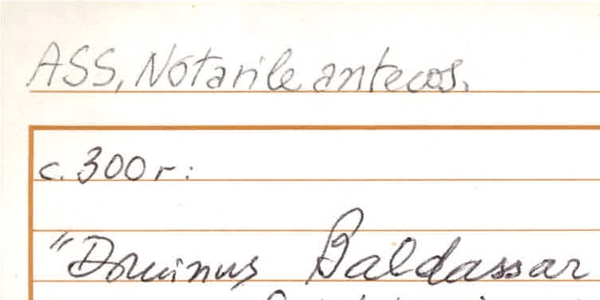 ASS, Notarile antecos.
c. 300 r:
"Dominus Baldassar